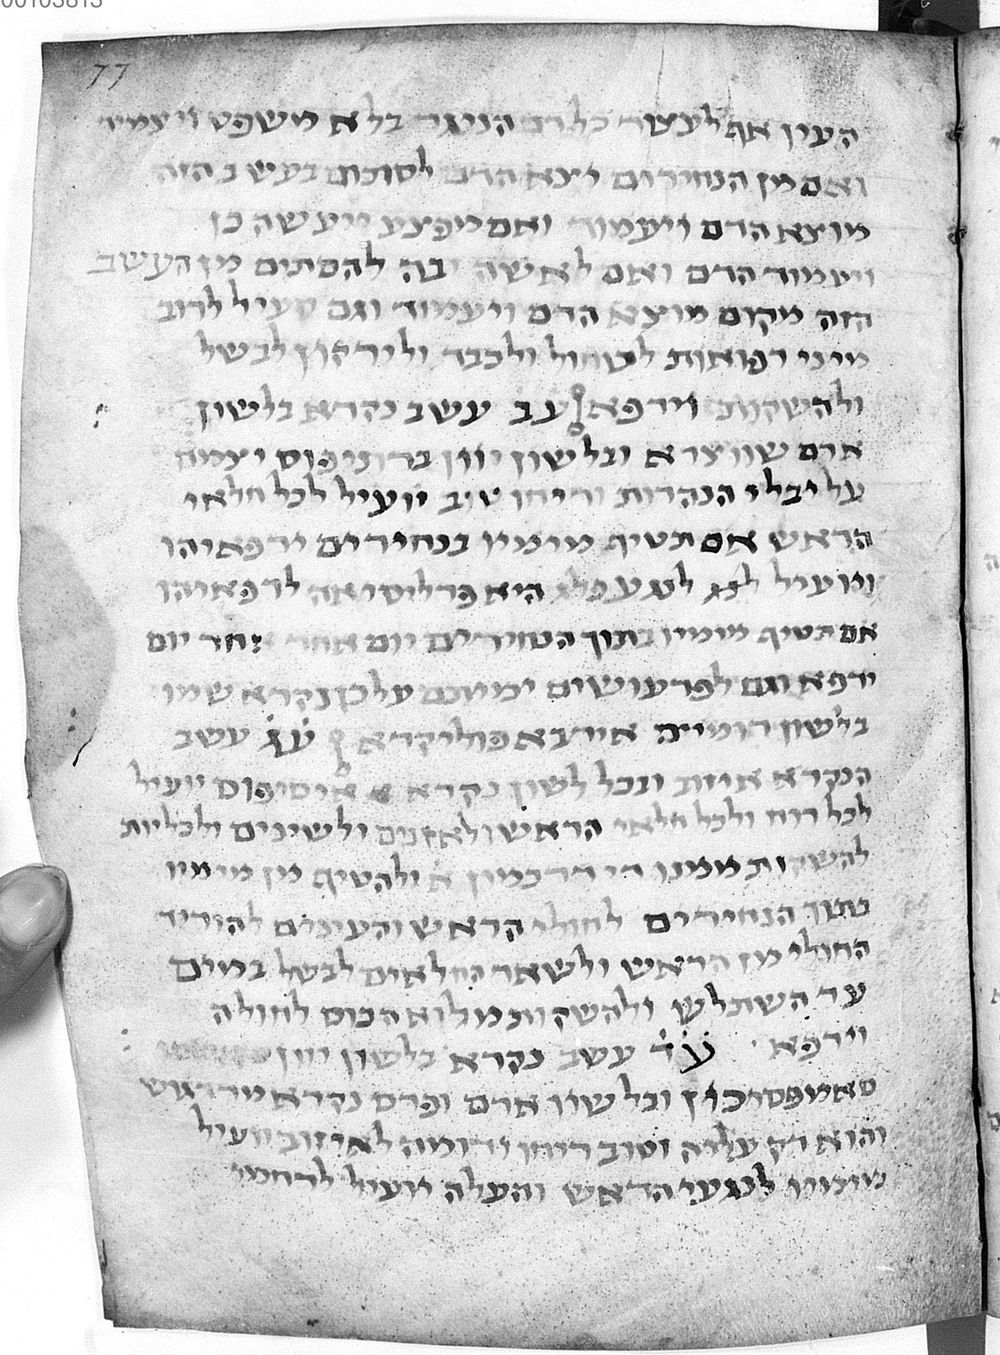 00103813
77
העין אף לעצור כל דם הניגר בלא משפט ויעמוד
ואם מן הנחירים יצא הדם לסתום בעשב הזה
מוצא הדם ויעמוד ואם מפצע יעשה כן
ויעמוד הדם ואם לאשה זבה להסתים מן העשב
הזה מקום מוצא הדם ויעמוד וגם מעיל לרוב
מיני רפואות לטחול ולכבד ולירקון לבשל
ולהשקות וירפא עב עשב נקרא בלשון
ארם שווצרא ובלשון יוון ברוניפוס יצמח
על יבלי הנהרות וריחו טוב יועיל לכל חלאי
הראש אם תטיף מימיו בנחירים ירפאיהו
ויועיל לנגע פלג היא פרליסיאה לרפאיהו
אם תטיף מימיו בתוך הנחירים יום אחר יום
ירפא וגם לפרעושים ימיתם על כן נקרא שמו
בלשון רומיים אירבא פוליקרא עג עשב
הנקרא איזוב ובכל לשון נקרא איסיפוס יועיל
לכל רוח ולכל חלאי הראש ולאזנים ולשינים ולכליות
להשקות ממנו די דרכמון א ולהטיף מן מימיו
בתוך הנחירים לחולי הראש והעינים להוריד
החולי מן הראש ולשאר החלאים לבשל במים
עד השתלש ולהשקות מלוא הכוס לחולה
וירפא עד עשב נקרא בלשון יוון
סאמפסוכון ובלשון ארם ופרס נקרא מרדגוש
והוא דק עליה וטוב ריחו ודומה לאיזוב יועיל
מימיו לנגעי הראש והעלה יועיל לרחמי